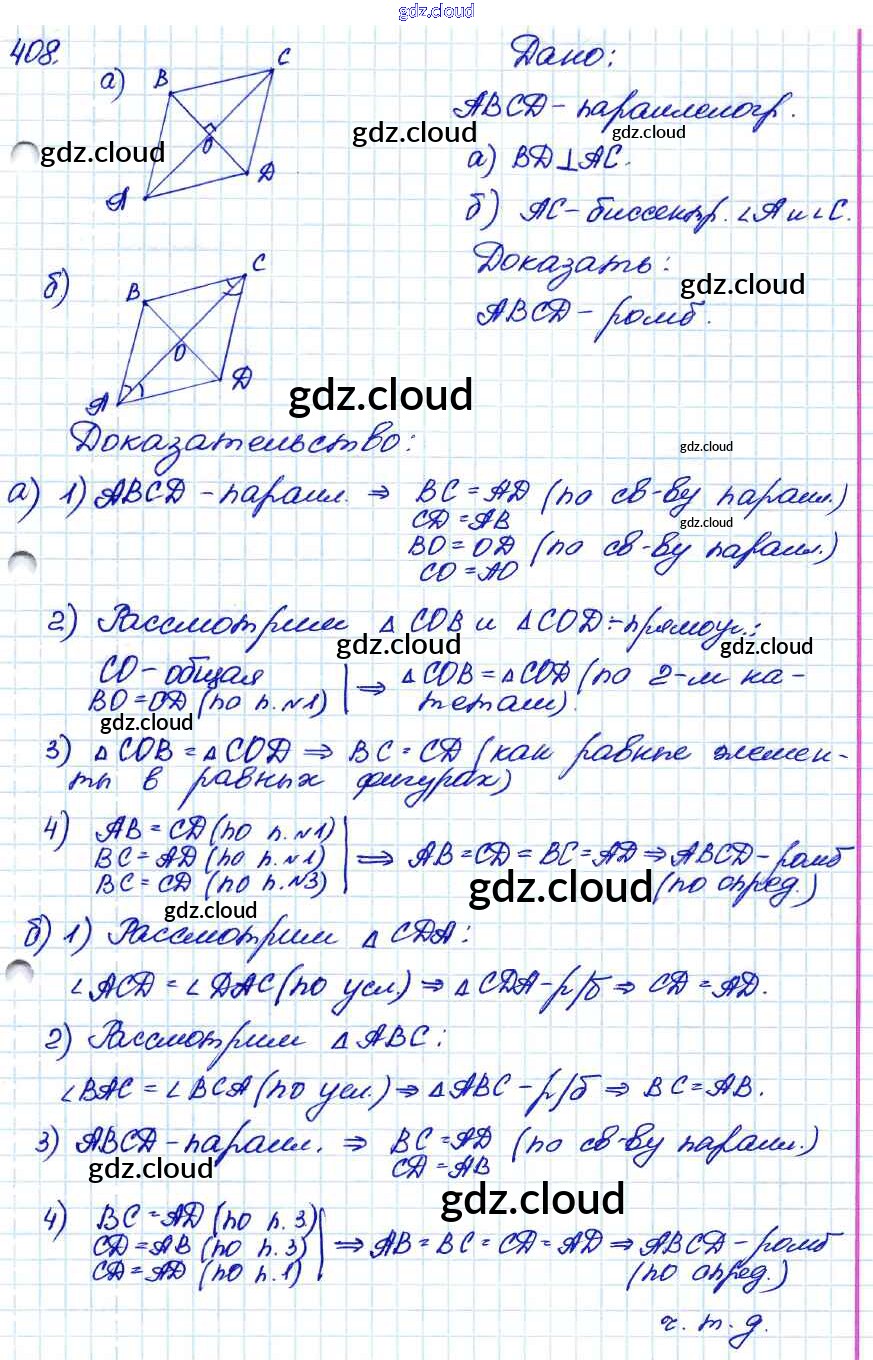 gdz.cloud
408.
а) B C O A D
Дано:
ABCD - параллелогр.
а) BD ⊥ AC.
б) AC - биссектр. ∠A и ∠C.
б) B C O A D
Доказать:
ABCD - ромб.
gdz.cloud
gdz.cloud
gdz.cloud
gdz.cloud
gdz.cloud
Доказательство:
gdz.cloud
а) 1) ABCD - паралл. ⇒ BC = AD (по св-ву паралл.)
CD = AB
gdz.cloud
BO = OD (по св-ву паралл.)
CO = AO
2) Рассмотрим △ COB и △ COD - прямоуг.:
gdz.cloud
gdz.cloud
CO - общая
BO = OD (по п. №1) ⇒ △ COB = △ COD (по 2-м ка-
тетам).
gdz.cloud
3) △ COB = △ COD ⇒ BC = CD (как равные элемен-
ты в равных фигурах)
4) AB = CD (по п. №1)
BC = AD (по п. №1) ⇒ AB = CD = BC = AD ⇒ ABCD - ромб
BC = CD (по п. №3) (по опред.)
gdz.cloud
gdz.cloud
б) 1) Рассмотрим △ CDA:
∠ACD = ∠DAC (по усл.) ⇒ △ CDA - р/б ⇒ CD = AD.
2) Рассмотрим △ ABC:
∠BAC = ∠BCA (по усл.) ⇒ △ ABC - р/б ⇒ BC = AB.
3) ABCD - паралл. ⇒ BC = AD (по св-ву паралл.)
CD = AB
gdz.cloud
gdz.cloud
4) BC = AD (по п. 3)
CD = AB (по п. 3) ⇒ AB = BC = CD = AD ⇒ ABCD - ромб
CD = AD (по п. 1) (по опред.)
ч. т. д.